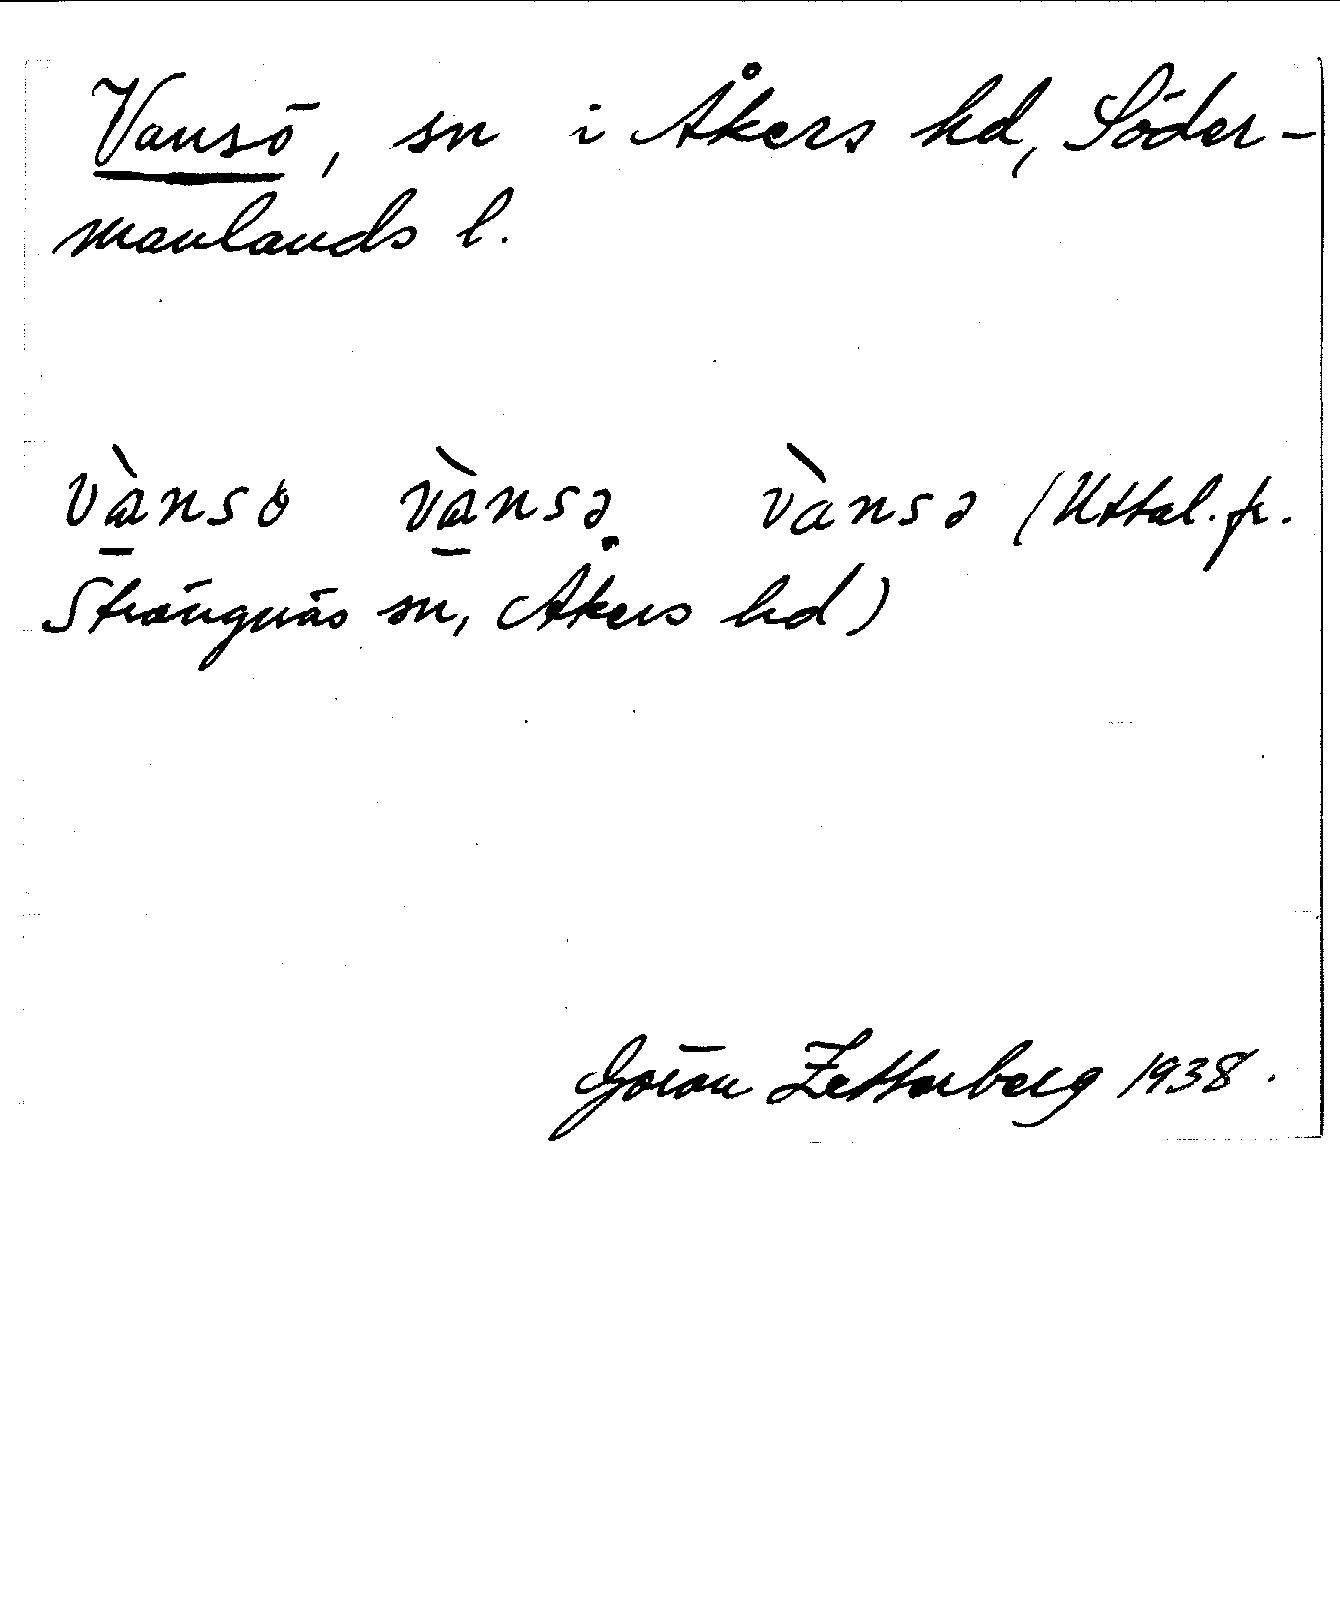 Vansö, sn i Åkers hd, Söder-
manlands l.
vànsö vànsə vànsə (Uttal. fr.
Strängnäs sn, Åkers hd)
Göran Zetterberg 1938.